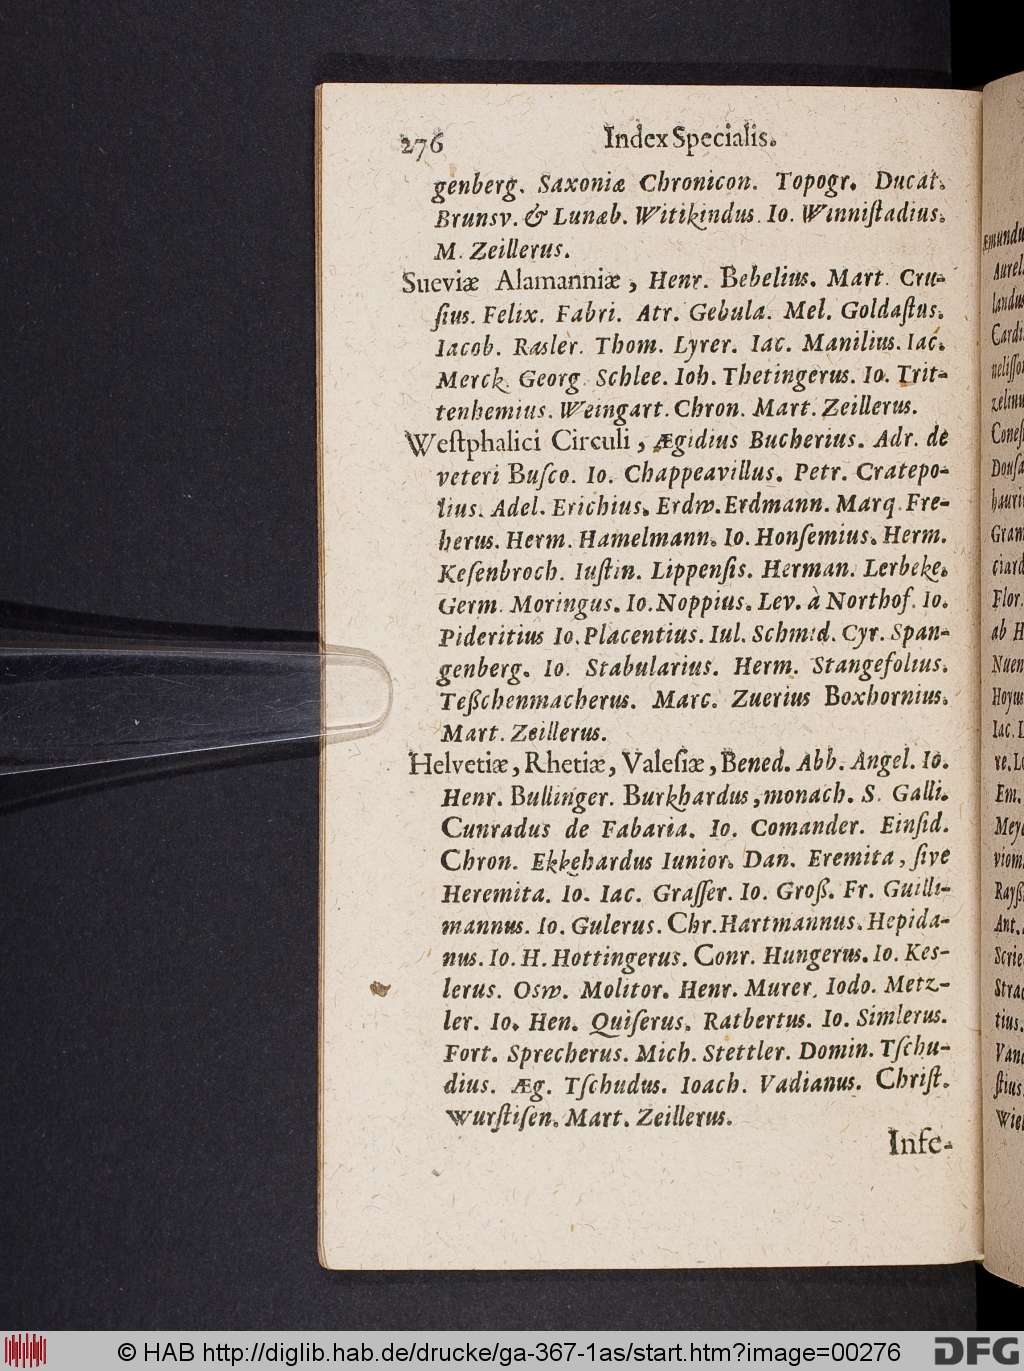 276 Index Specialis.
genberg. Saxoniæ Chronicon. Topogr. Ducat.
Brunsv. & Lunæb. Witikindus. Io. Winniſtadius.
M. Zeillerus.
Sueviæ Alamanniæ, Henr. Bebelius. Mart. Cru-
ſius. Felix. Fabri. Atr. Gebula. Mel. Goldaſtus.
Iacob. Rasler. Thom. Lyrer. Iac. Manilius. Iac.
Merck. Georg. Schlee. Ioh. Thetingerus. Io. Trit-
tenhemius. Weingart. Chron. Mart. Zeillerus.
Weſtphalici Circuli, Ægidius Bucherius. Adr. de
veteri Buſco. Io. Chappeavillus. Petr. Cratepo-
lius. Adel. Erichius. Erdw. Erdmann. Marq. Fre-
herus. Herm. Hamelmann. Io. Honſemius. Herm.
Keſenbroch. Iuſtin. Lippenſis. Herman. Lerbeke.
Germ. Moringus. Io. Noppius. Lev. à Northof. Io.
Pideritius Io. Placentius. Iul. Schmid. Cyr. Span-
genberg. Io. Stabularius. Herm. Stangefolius.
Teßchenmacherus. Marc. Zuerius Boxhornius.
Mart. Zeillerus.
Helvetiæ, Rhetiæ, Valeſiæ, Bened. Abb. Angel. Io.
Henr. Bullinger. Burkhardus, monach. S. Galli.
Cunradus de Fabaria. Io. Comander. Einſid.
Chron. Ekkehardus Iunior. Dan. Eremita, ſive
Heremita. Io. Iac. Graſſer. Io. Groß. Fr. Guilli-
mannus. Io. Gulerus. Chr. Hartmannus. Hepida-
nus. Io. H. Hottingerus. Conr. Hungerus. Io. Kes-
lerus. Osw. Molitor. Henr. Murer. Iodo. Metz-
ler. Io. Hen. Quiſerus. Ratbertus. Io. Simlerus.
Fort. Sprecherus. Mich. Stettler. Domin. Tſchu-
dius. Æg. Tſchudus. Ioach. Vadianus. Chriſt.
Wurſtiſen. Mart. Zeillerus.
Infe-
© HAB http://diglib.hab.de/drucke/ga-367-1as/start.htm?image=00276
DFG